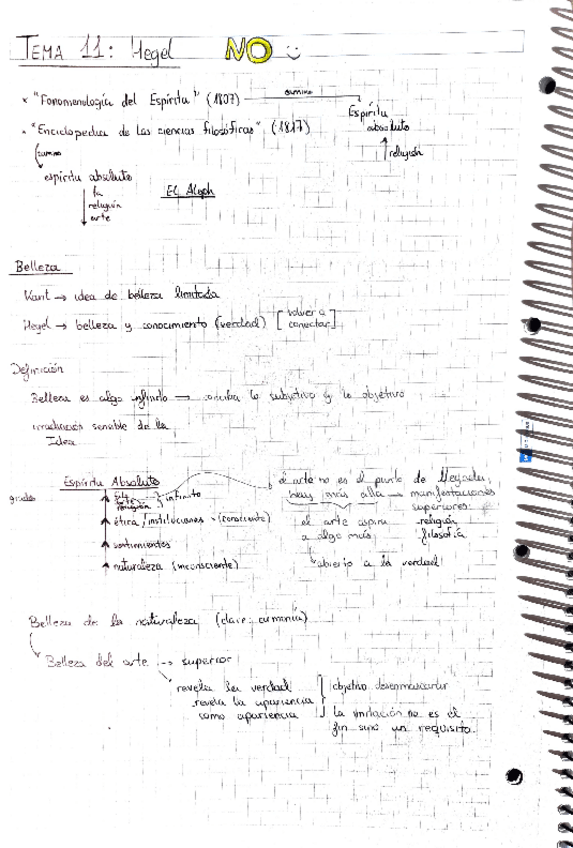 TEMA 11: Hegel NO
× "Fonomenología del Espíritu" (1807)
camino
Espíritu
absoluto
religión
"Enciclopedia de las ciencias filosóficas" (1817)
camino
espíritu absoluto
la
religión
arte
EL Aleph
Belleza
Kant → idea de belleza limitada
Hegel → belleza y conocimiento (verdad) [volver a
conectar]
Definición
Belleza es algo infinito → concilia lo subjetivo y lo objetivo
irradiación sensible de la
Idea
Espíritu Absoluto
grados
arte
religión } infinito
ética / instituciones → (consciente)
sentimientos
naturaleza (inconsciente)
el arte no es el punto de llegada,
hay más allá → manifestaciones
superiores:
el arte aspira
a algo más
religión
filosofía
abierto a la verdad
Belleza de la naturaleza (clave: armonía)
Belleza del arte → superior
revela la verdad
revela la apariencia
como apariencia
objetivo desenmascarar
la imitación no es el
fin sino un requisito.